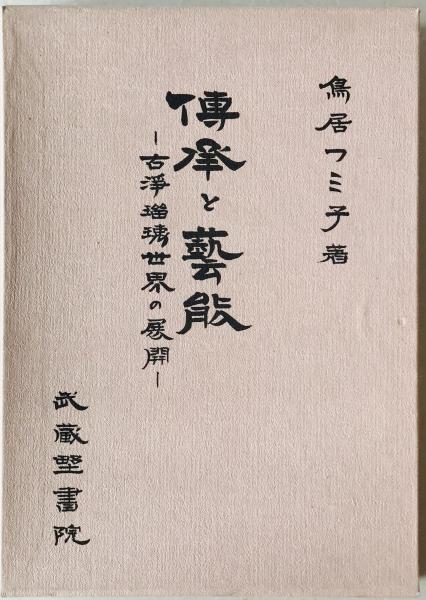 鳥居フミ子著
傳承と藝能
−古淨瑠璃世界の展開−
武蔵野書院